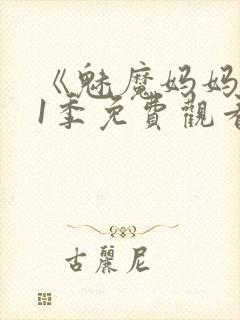 《魅魔妈妈
1季免費觀看
古麗尼